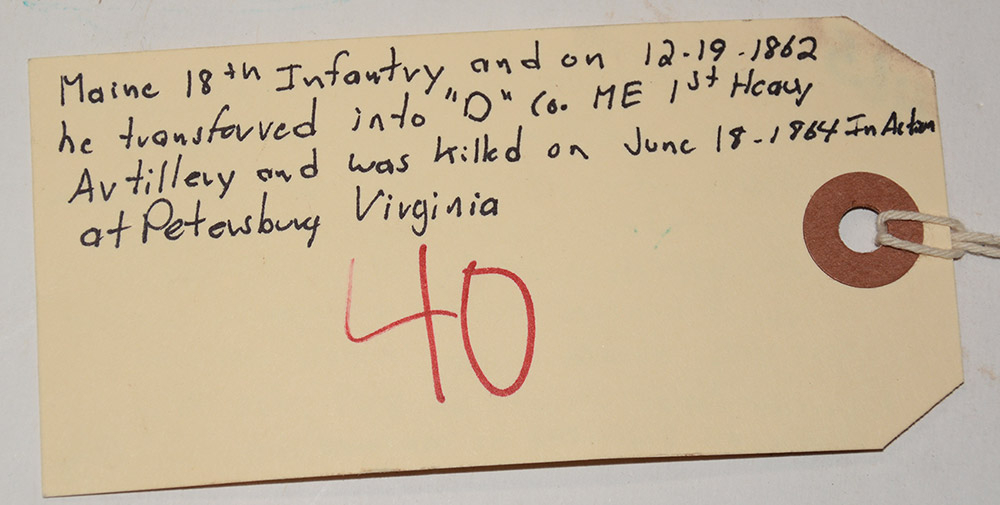 Maine 18th Infantry and on 12-19-1862
he transferred into "D" Co. ME 1st Heavy
Artillery and was killed on June 18-1864 In Action
at Petersburg Virginia
40